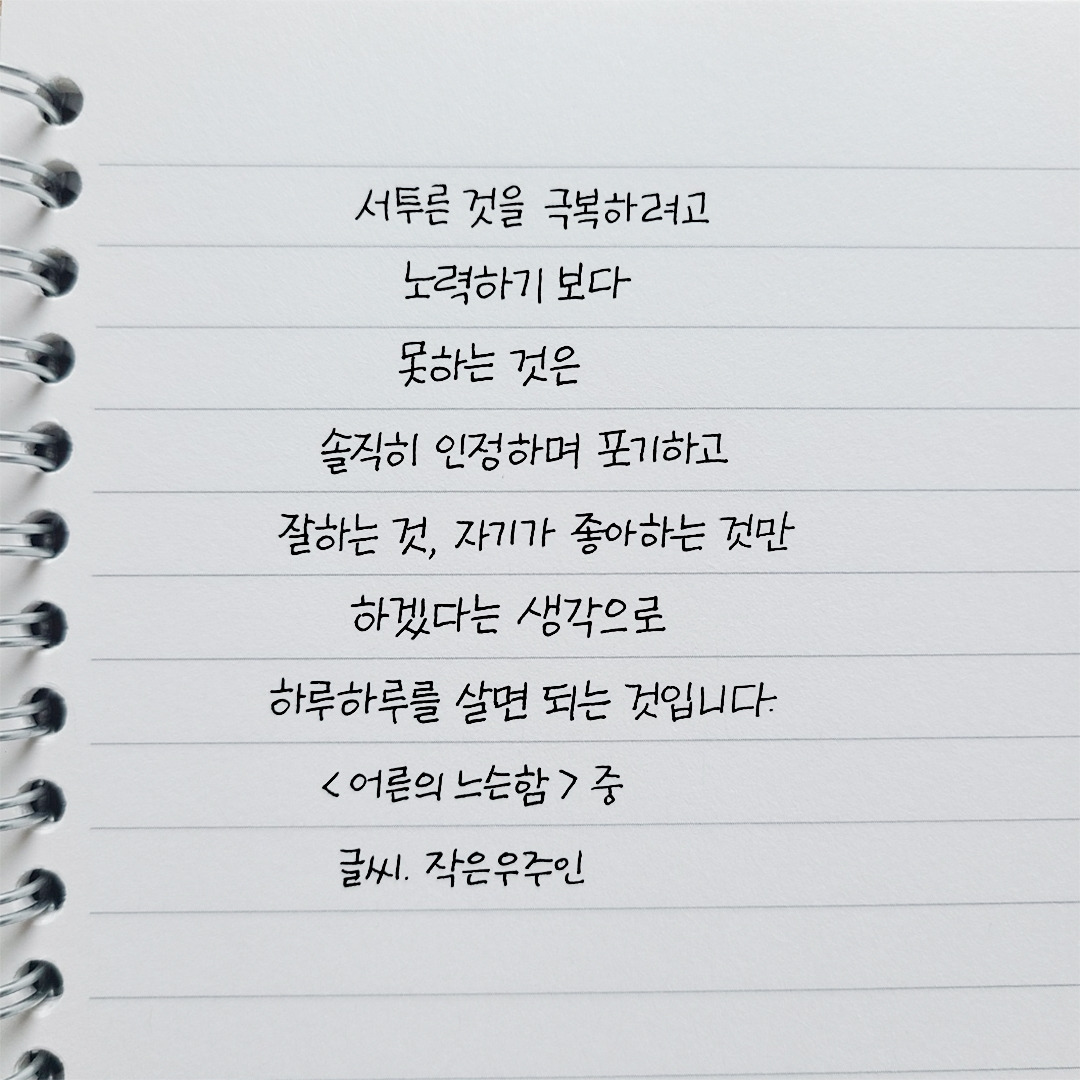 서투른 것을 극복하려고
노력하기 보다
못하는 것은
솔직히 인정하며 포기하고
잘하는 것, 자기가 좋아하는 것만
하겠다는 생각으로
하루하루를 살면 되는 것입니다.
<어른의 느슨함> 중
글씨. 작은우주인